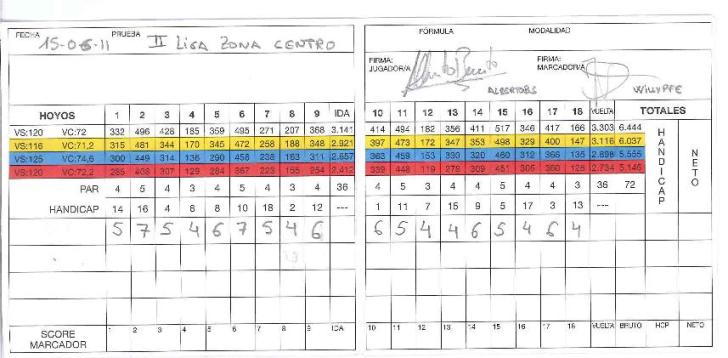 FECHA 15-06-11 PRUEBA II LIGA ZONA CENTRO
FÓRMULA MODALIDAD
FIRMA: JUGADOR/A ALBERTOBS FIRMA: MARCADOR/A WILLYPFE
HOYOS 1 2 3 4 5 6 7 8 9 IDA 10 11 12 13 14 15 16 17 18 VUELTA TOTALES
VS:120 VC:72 332 496 428 185 359 495 271 207 368 3.141 414 494 182 356 411 517 346 417 166 3.303 6.444
VS:116 VC:71,2 315 481 344 170 345 472 258 188 348 2.921 397 473 172 347 353 498 329 400 147 3.116 6.037
VS:125 VC:74,6 300 449 314 136 290 458 238 163 311 2.657 363 459 153 330 320 460 312 366 135 2.898 5.555
VS:120 VC:72,2 285 408 307 129 284 367 223 155 254 2.412 339 448 119 278 309 451 305 360 126 2.734 5.146
PAR 4 5 4 3 4 5 4 3 4 36 4 5 3 4 4 5 4 4 3 36 72
HANDICAP 14 16 4 6 8 10 18 2 12 --- 1 11 7 15 9 5 17 3 13 ---
HANDICAP
NETO
5 7 5 4 6 7 5 4 6 6 5 4 4 6 5 4 6 4
SCORE MARCADOR 1 2 3 4 5 6 7 8 9 IDA 10 11 12 13 14 15 16 17 18 VUELTA BRUTO HCP NETO